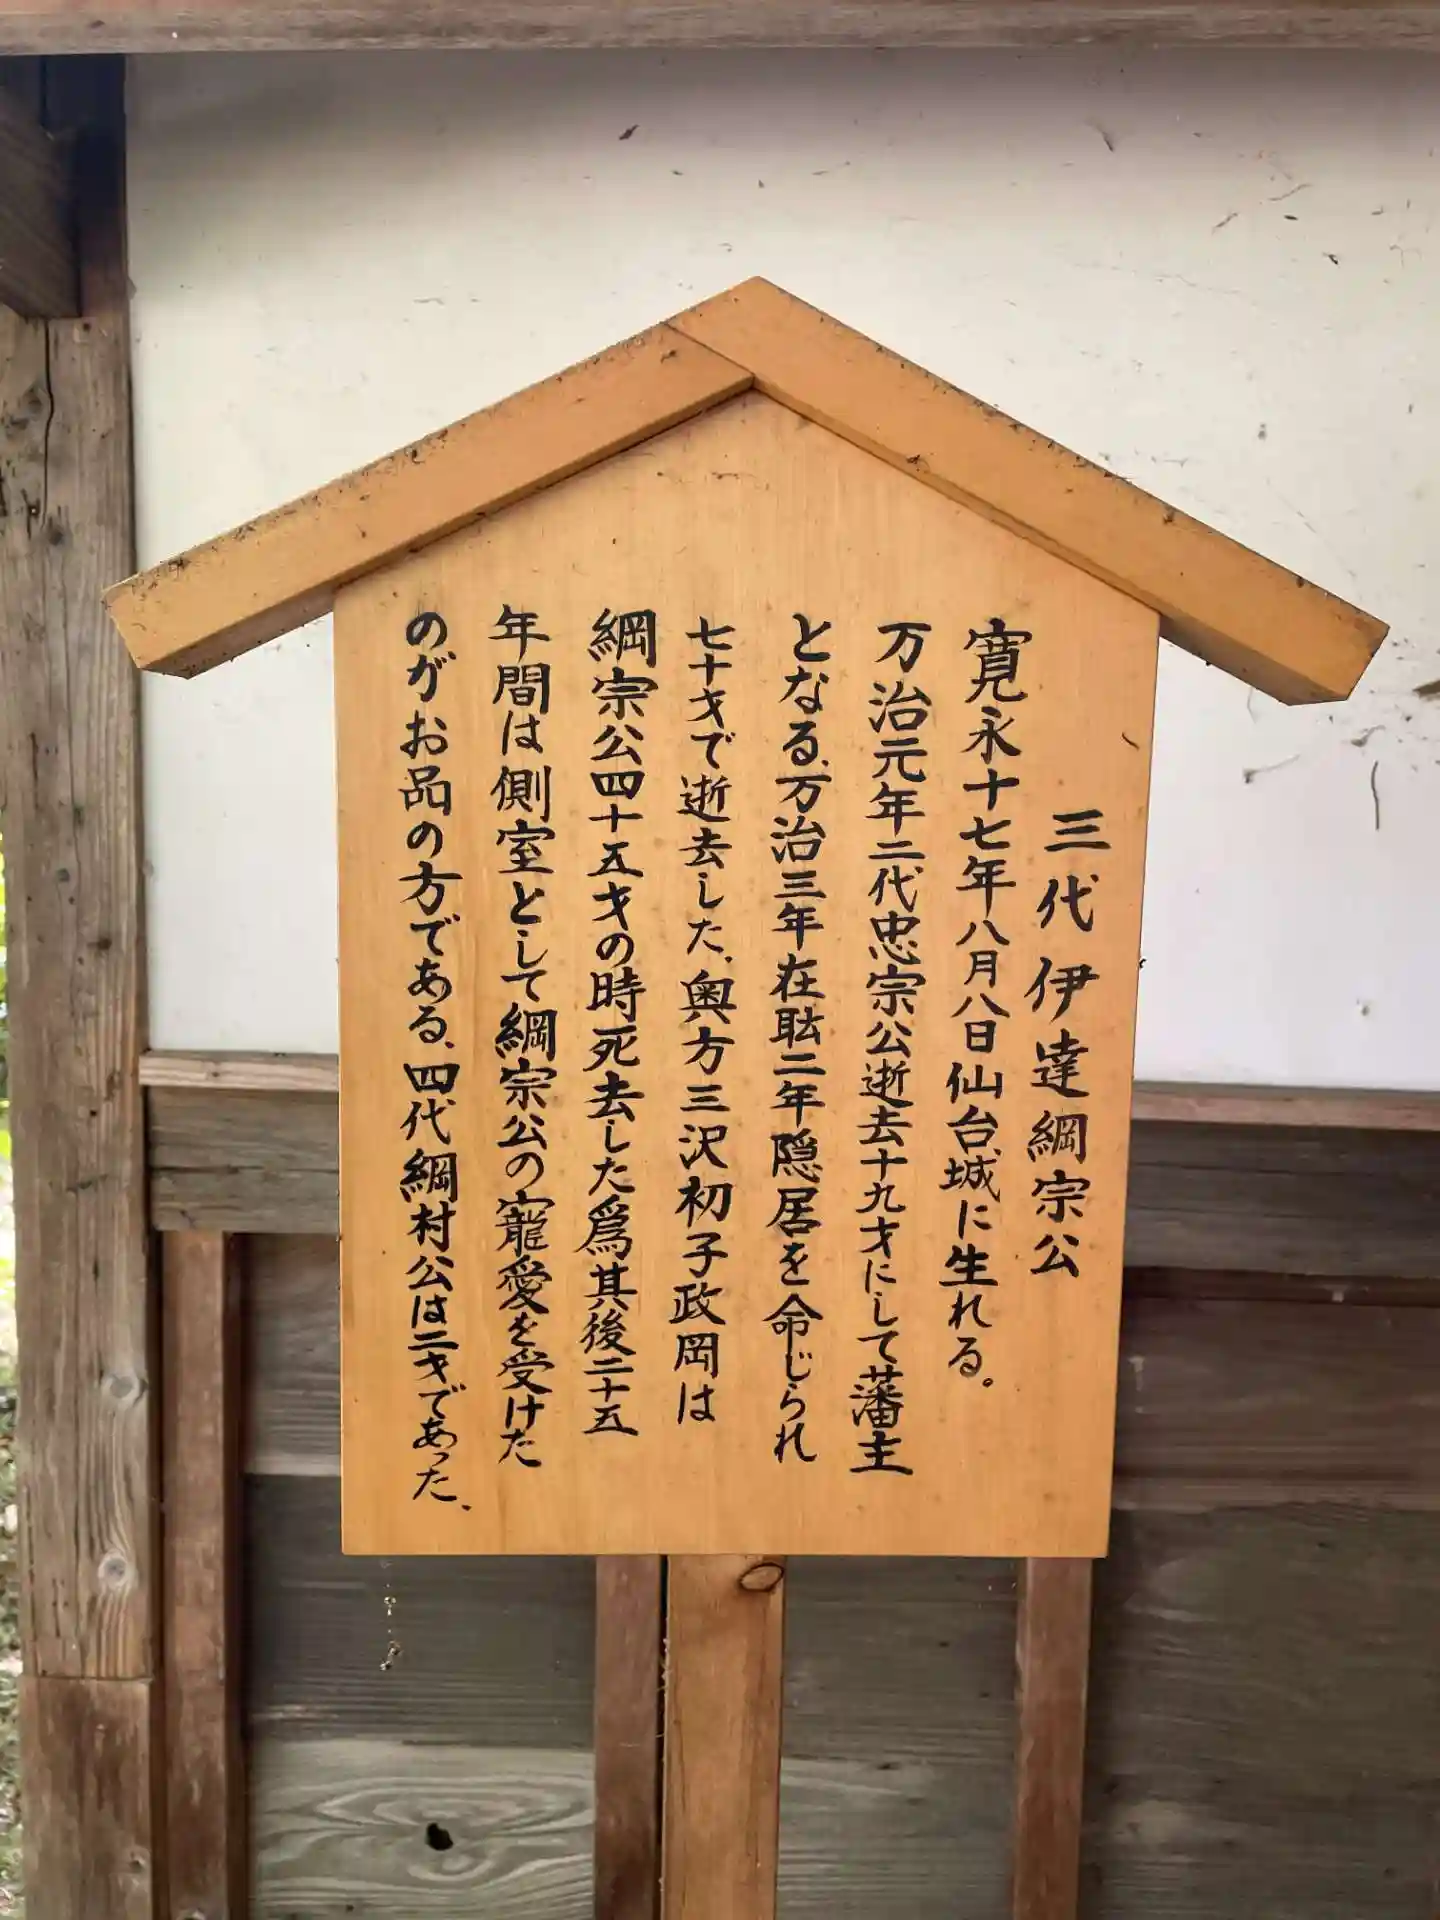 三代伊達綱宗公
寛永十七年八月八日仙台城に生れる。
万治元年二代忠宗公逝去十九才にして藩主
となる、万治三年在職二年隠居を命じられ
七十才で逝去した、奥方三沢初子政岡は
綱宗公四十五才の時死去した爲其後二十五
年間は側室として綱宗公の寵愛を受けた
のがお品の方である、四代綱村公は二才であった、